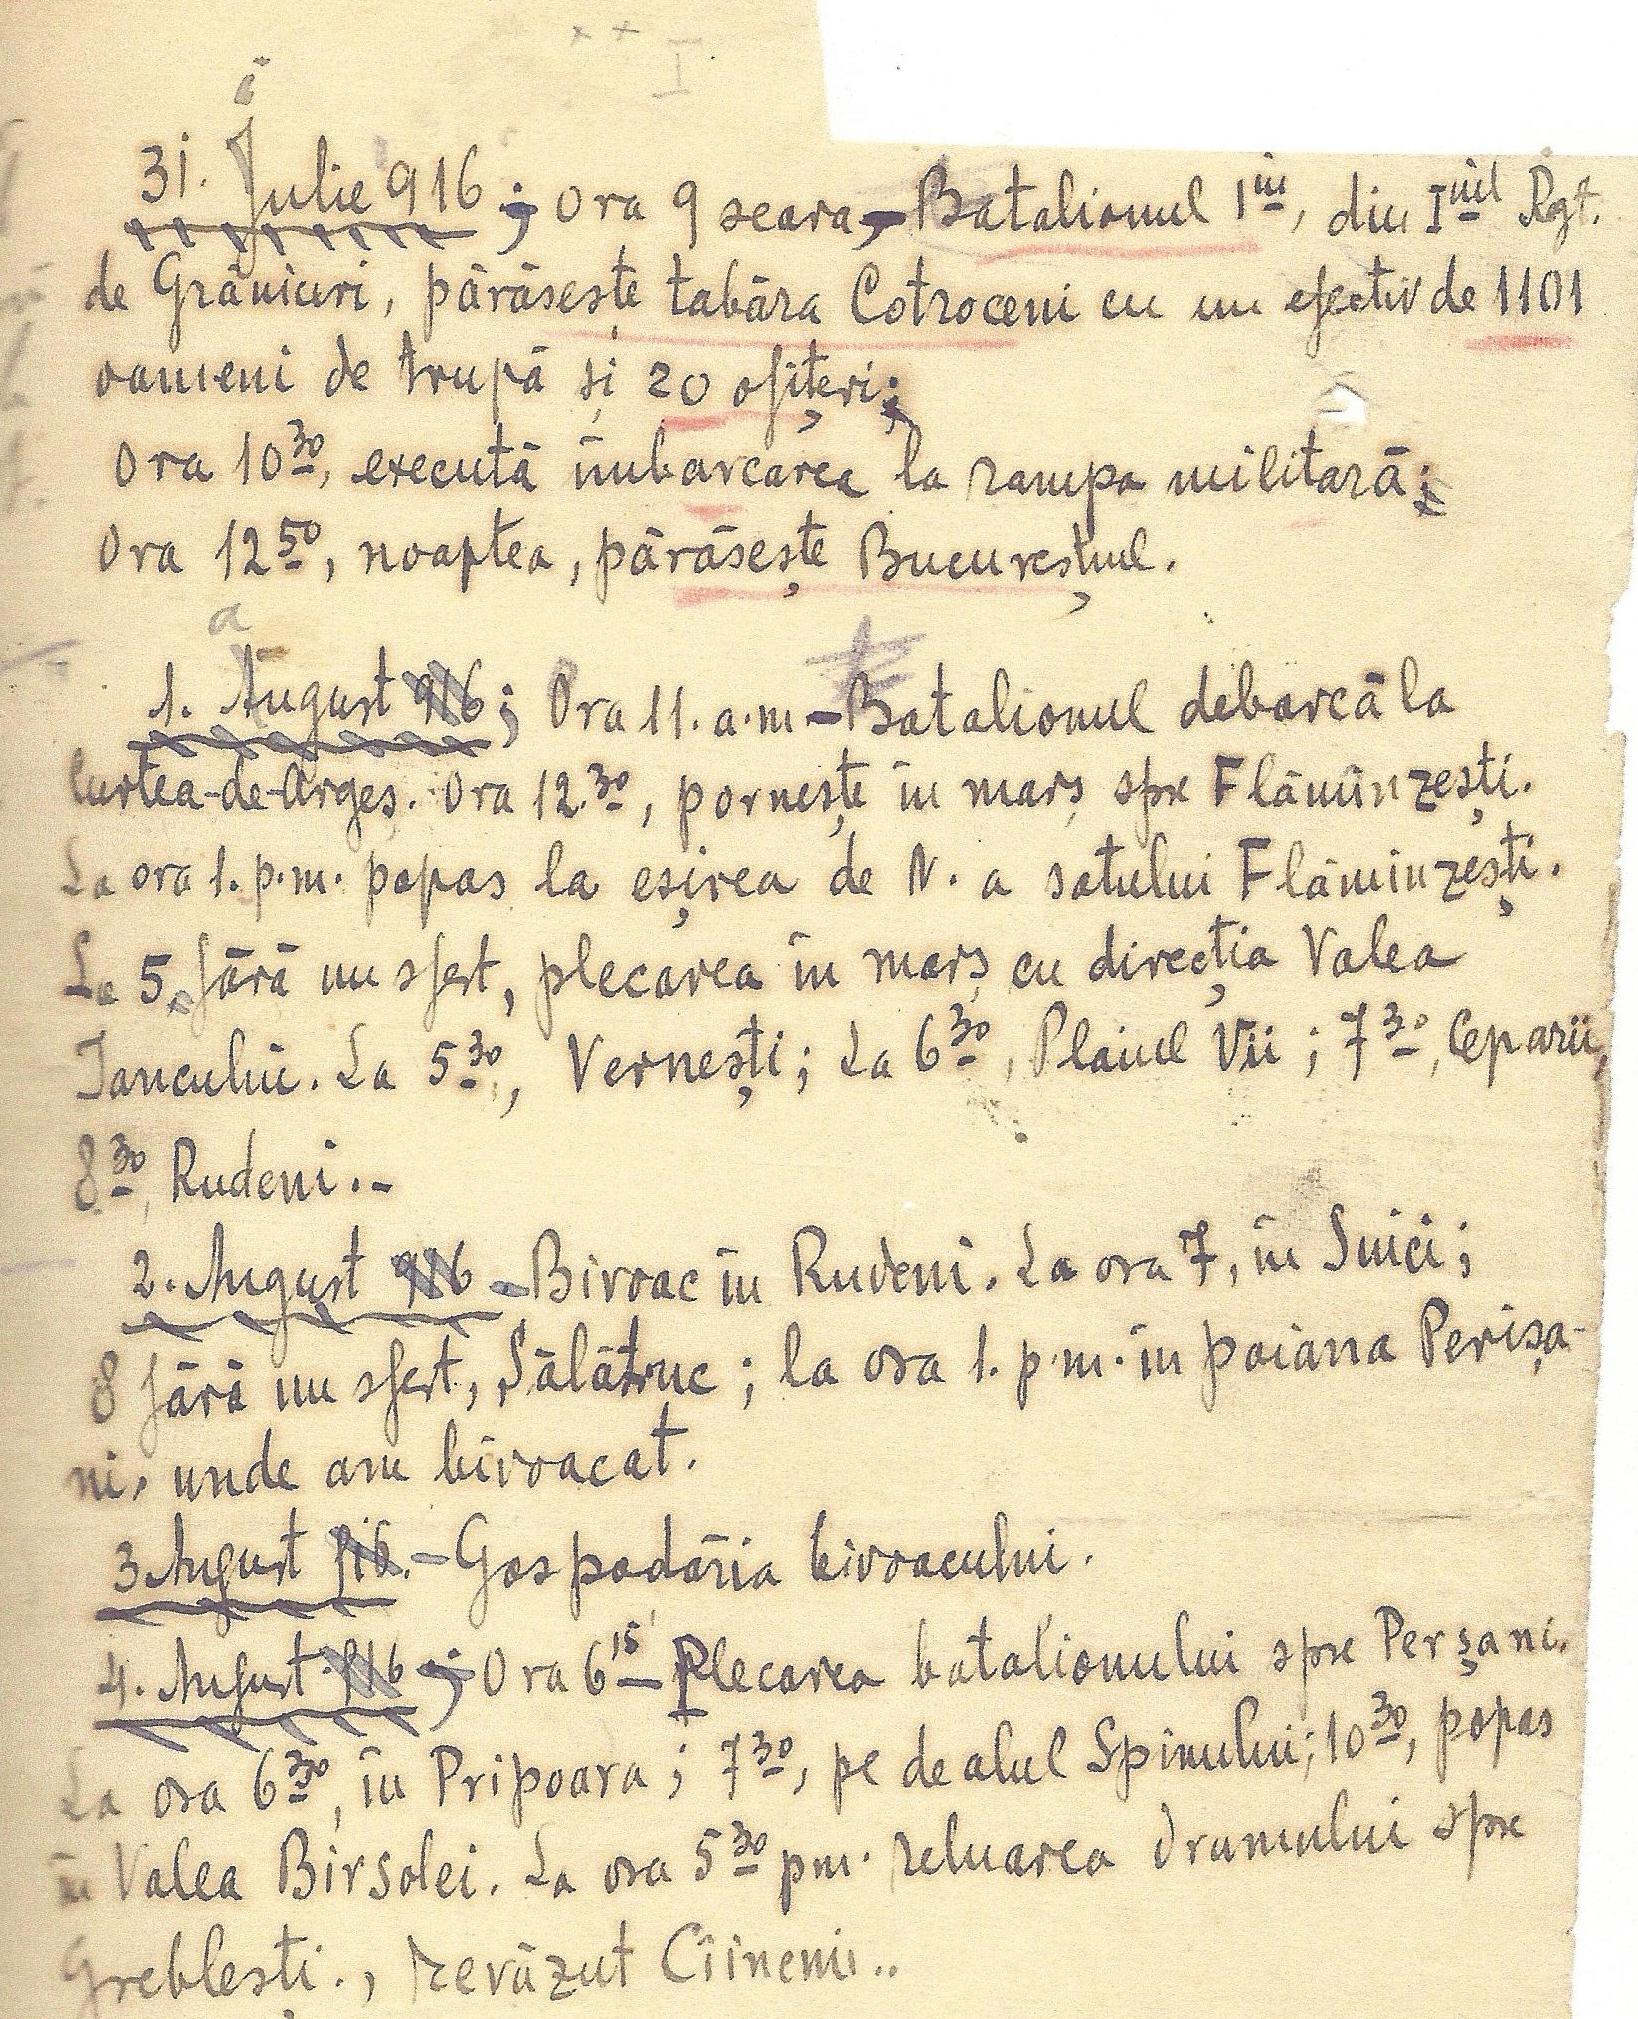 I
31. Julie 916; Ora 9 seara, - Batalionul 1iu, din Iiul Rgt.
de Grăniceri, părăsește tabăra Cotroceni cu un efectiv de 1101
oameni de trupă și 20 ofițeri;
Ora 10 30, execută îmbarcarea la rampa militară;
Ora 12 50, noaptea, părăsește Bucureștiul.
a
1. August 916; Ora 11. a.m - Batalionul debarcă la
Curtea-de-Argeș. Ora 12.30, pornește în marș spre Flămînzești.
La ora 1. p.m. popas la eșirea de N. a satului Flămînzești.
La 5 fără un sfert, plecarea în marș cu direcția Valea
Iancului. La 5 30, Vernești; La 6 30, Plaiul Vii; 7 30, Ceparii,
8 30, Rudeni.-
2. August 916 - Bivoac în Rudeni. La ora 7, în Suici;
8 fără un sfert, Sălătruc; la ora 1. p.m. în poiana Perișa-
ni, unde am bivoacat.
3 August 916. - Gospodăria bivoacului.
4. August 916; Ora 6 15 - Plecarea batalionului spre Perșani.
La ora 6 30, în Pripoara; 7 30, pe dealul Spinului; 10 30, popas
în Valea Bîrsolei. La ora 5 30 pm. reluarea drumului spre
Greblești., revăzut Cîineni..